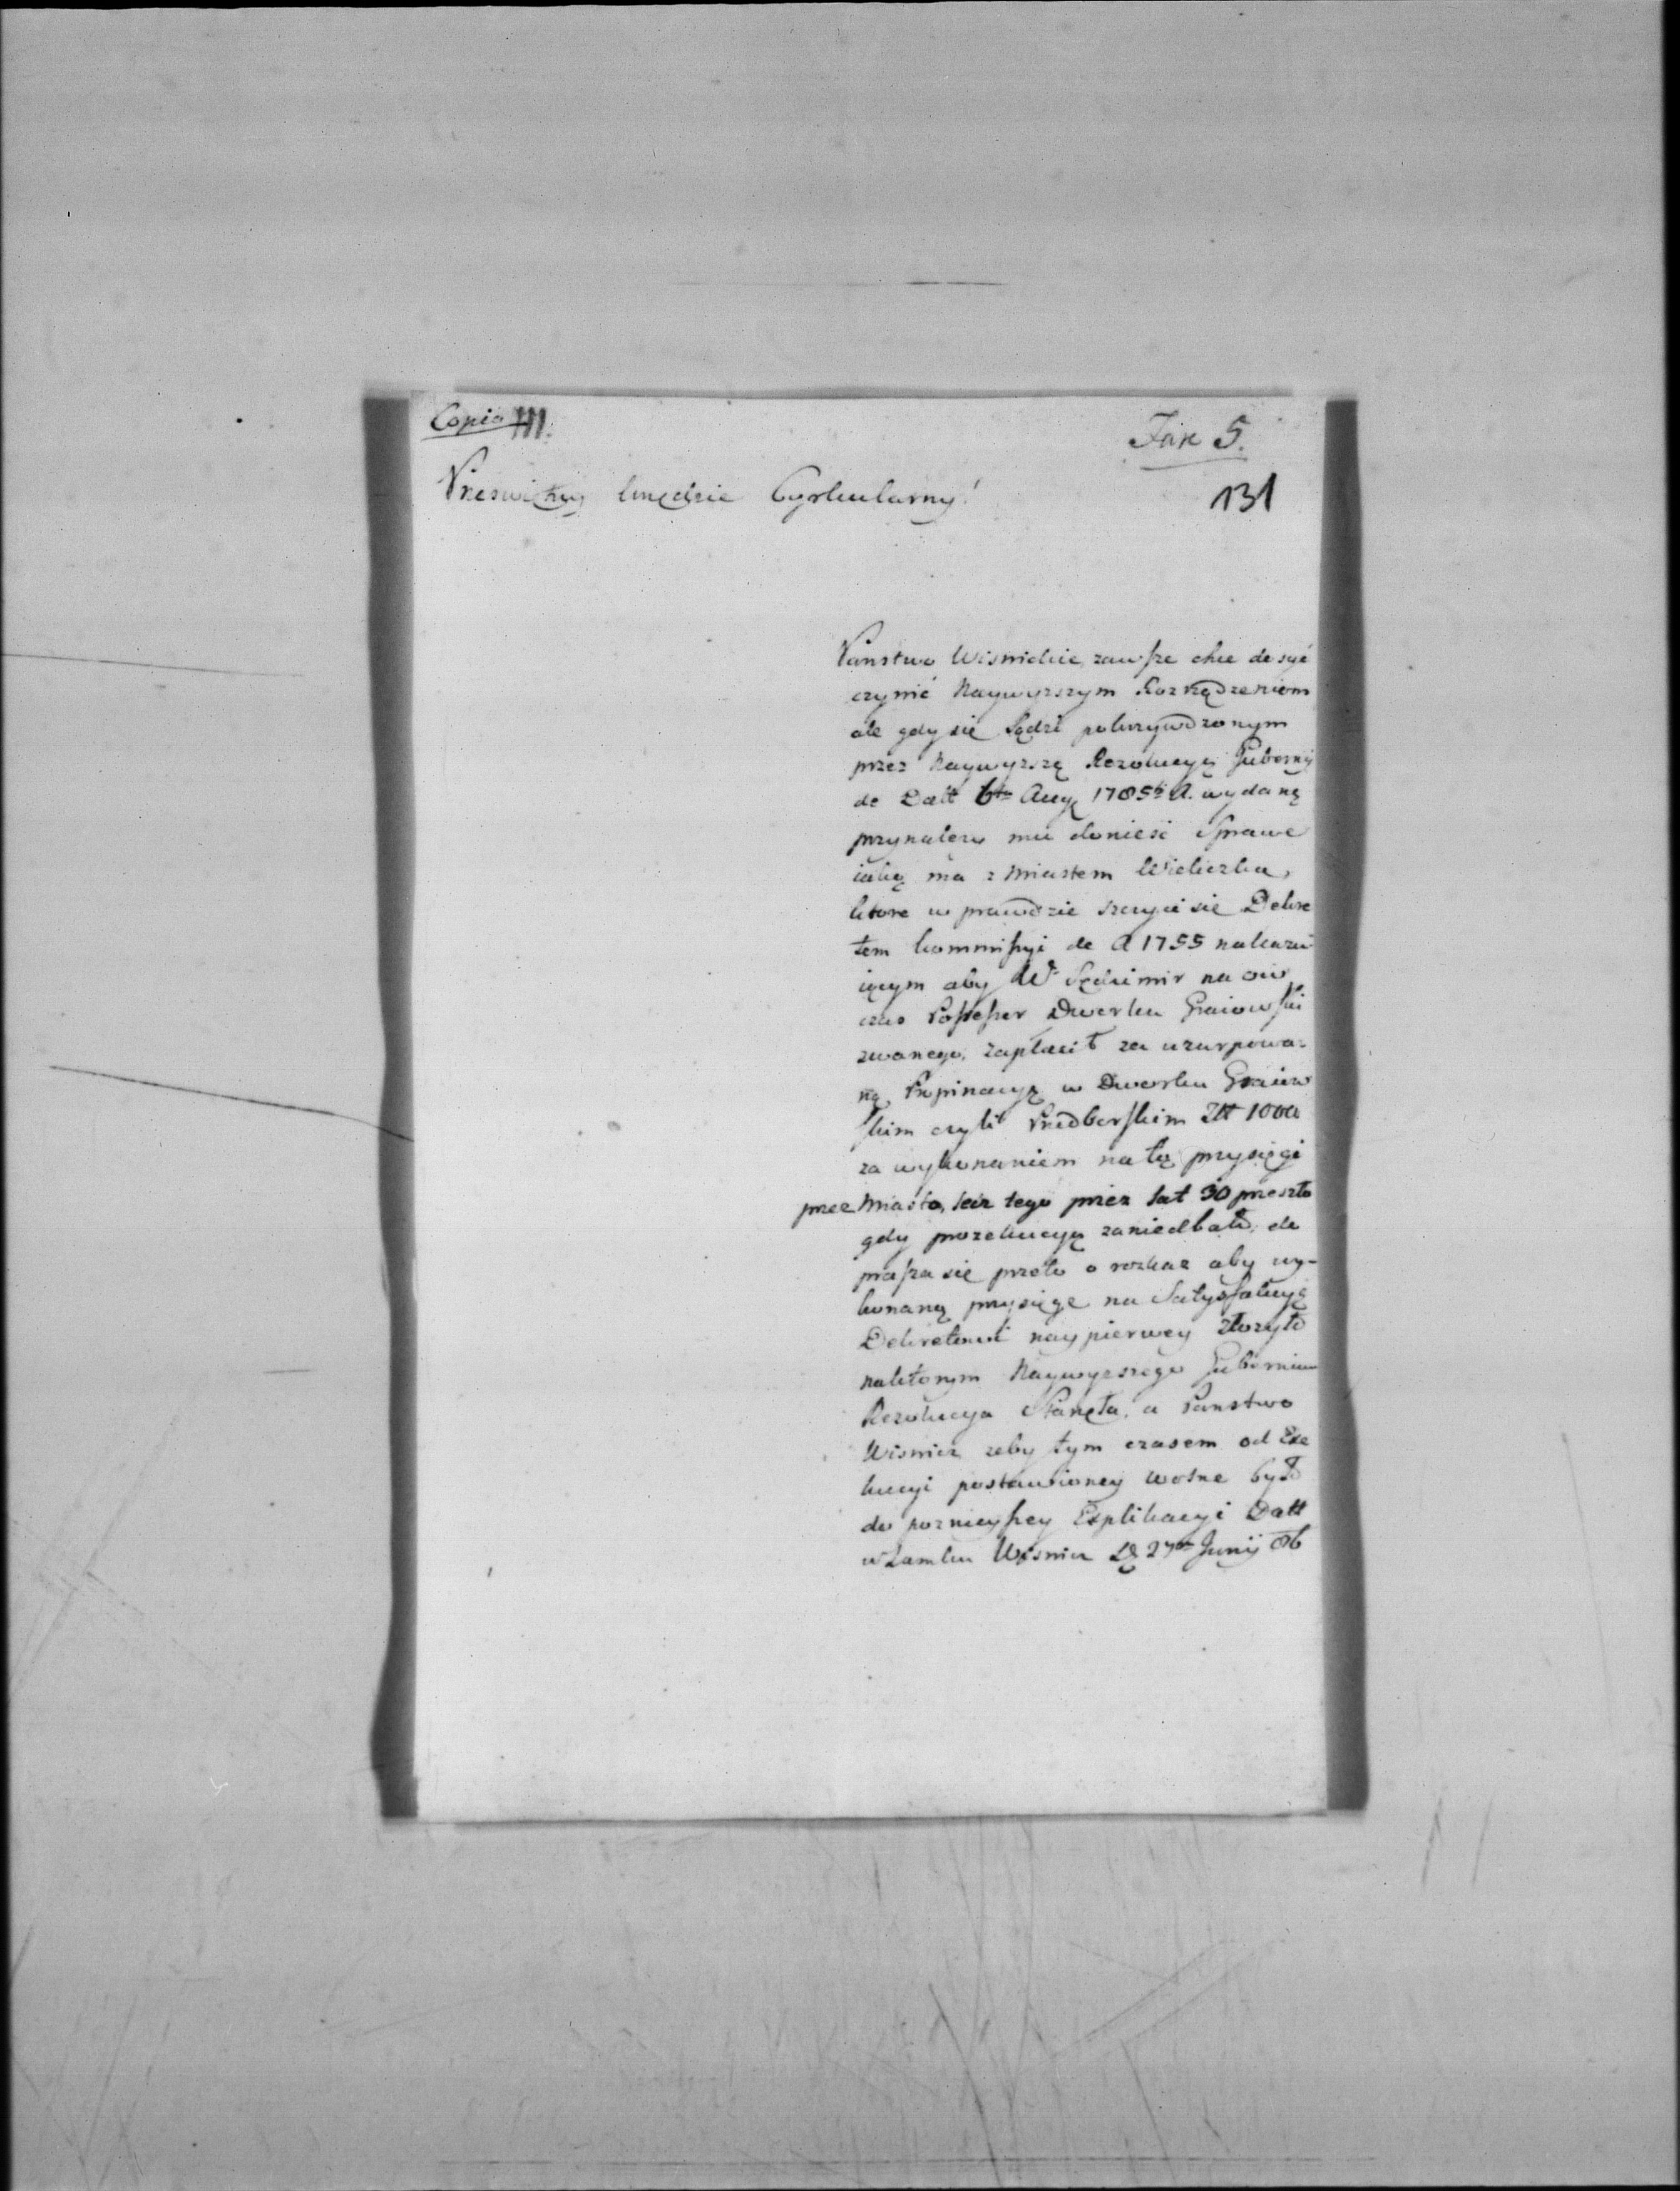 Copia III.
Fax 5.
Prześwietny Urzędzie Cyrkularny!
131
Panstwo Wisnickie, zawsze chce dosyć
czynić Naywyzszym Rozrządzeniom
ale gdy się Sądzi pokrzywdzonym
przez Naywyzszą Rezolucyą Gubernij
de Datt 6ta Aug 1785ti A. wydaną
przynależy mu donieść Sprawe
iaką ma z Miastem Wieliczka,
ktore w prawdzie szczyci się Dekre
tem Kommissyi de A 1755 nakazu
iącym aby Wo Sędzimir na ow
czas Possessor Dworku Graiowski
zwanego, zapłacił za uzurpowa=
ną Propinacyą w Dworku Graiow
skim czyli Przedborskim Złt 1000
za wykonaniem na to przysięgi
przez Miasto, lecz tego przez lat 30 przeszło
gdy prozekucyą zaniedbało, do
prasza się przeto o rozkaz aby wy-
konaną przysięgę na Satysfakcyą
Dekretowi naypierwey złozyło
naktorym Naywyzszego Gubernium
Rezolucya Stanęła, a Panstwo
Wisnicz zeby tym czasem od Exe
kucyi postawioney wolne było
do poznieyszey Explikacyi Datt
w Zamku Wisnicz D 27ma Junij 86